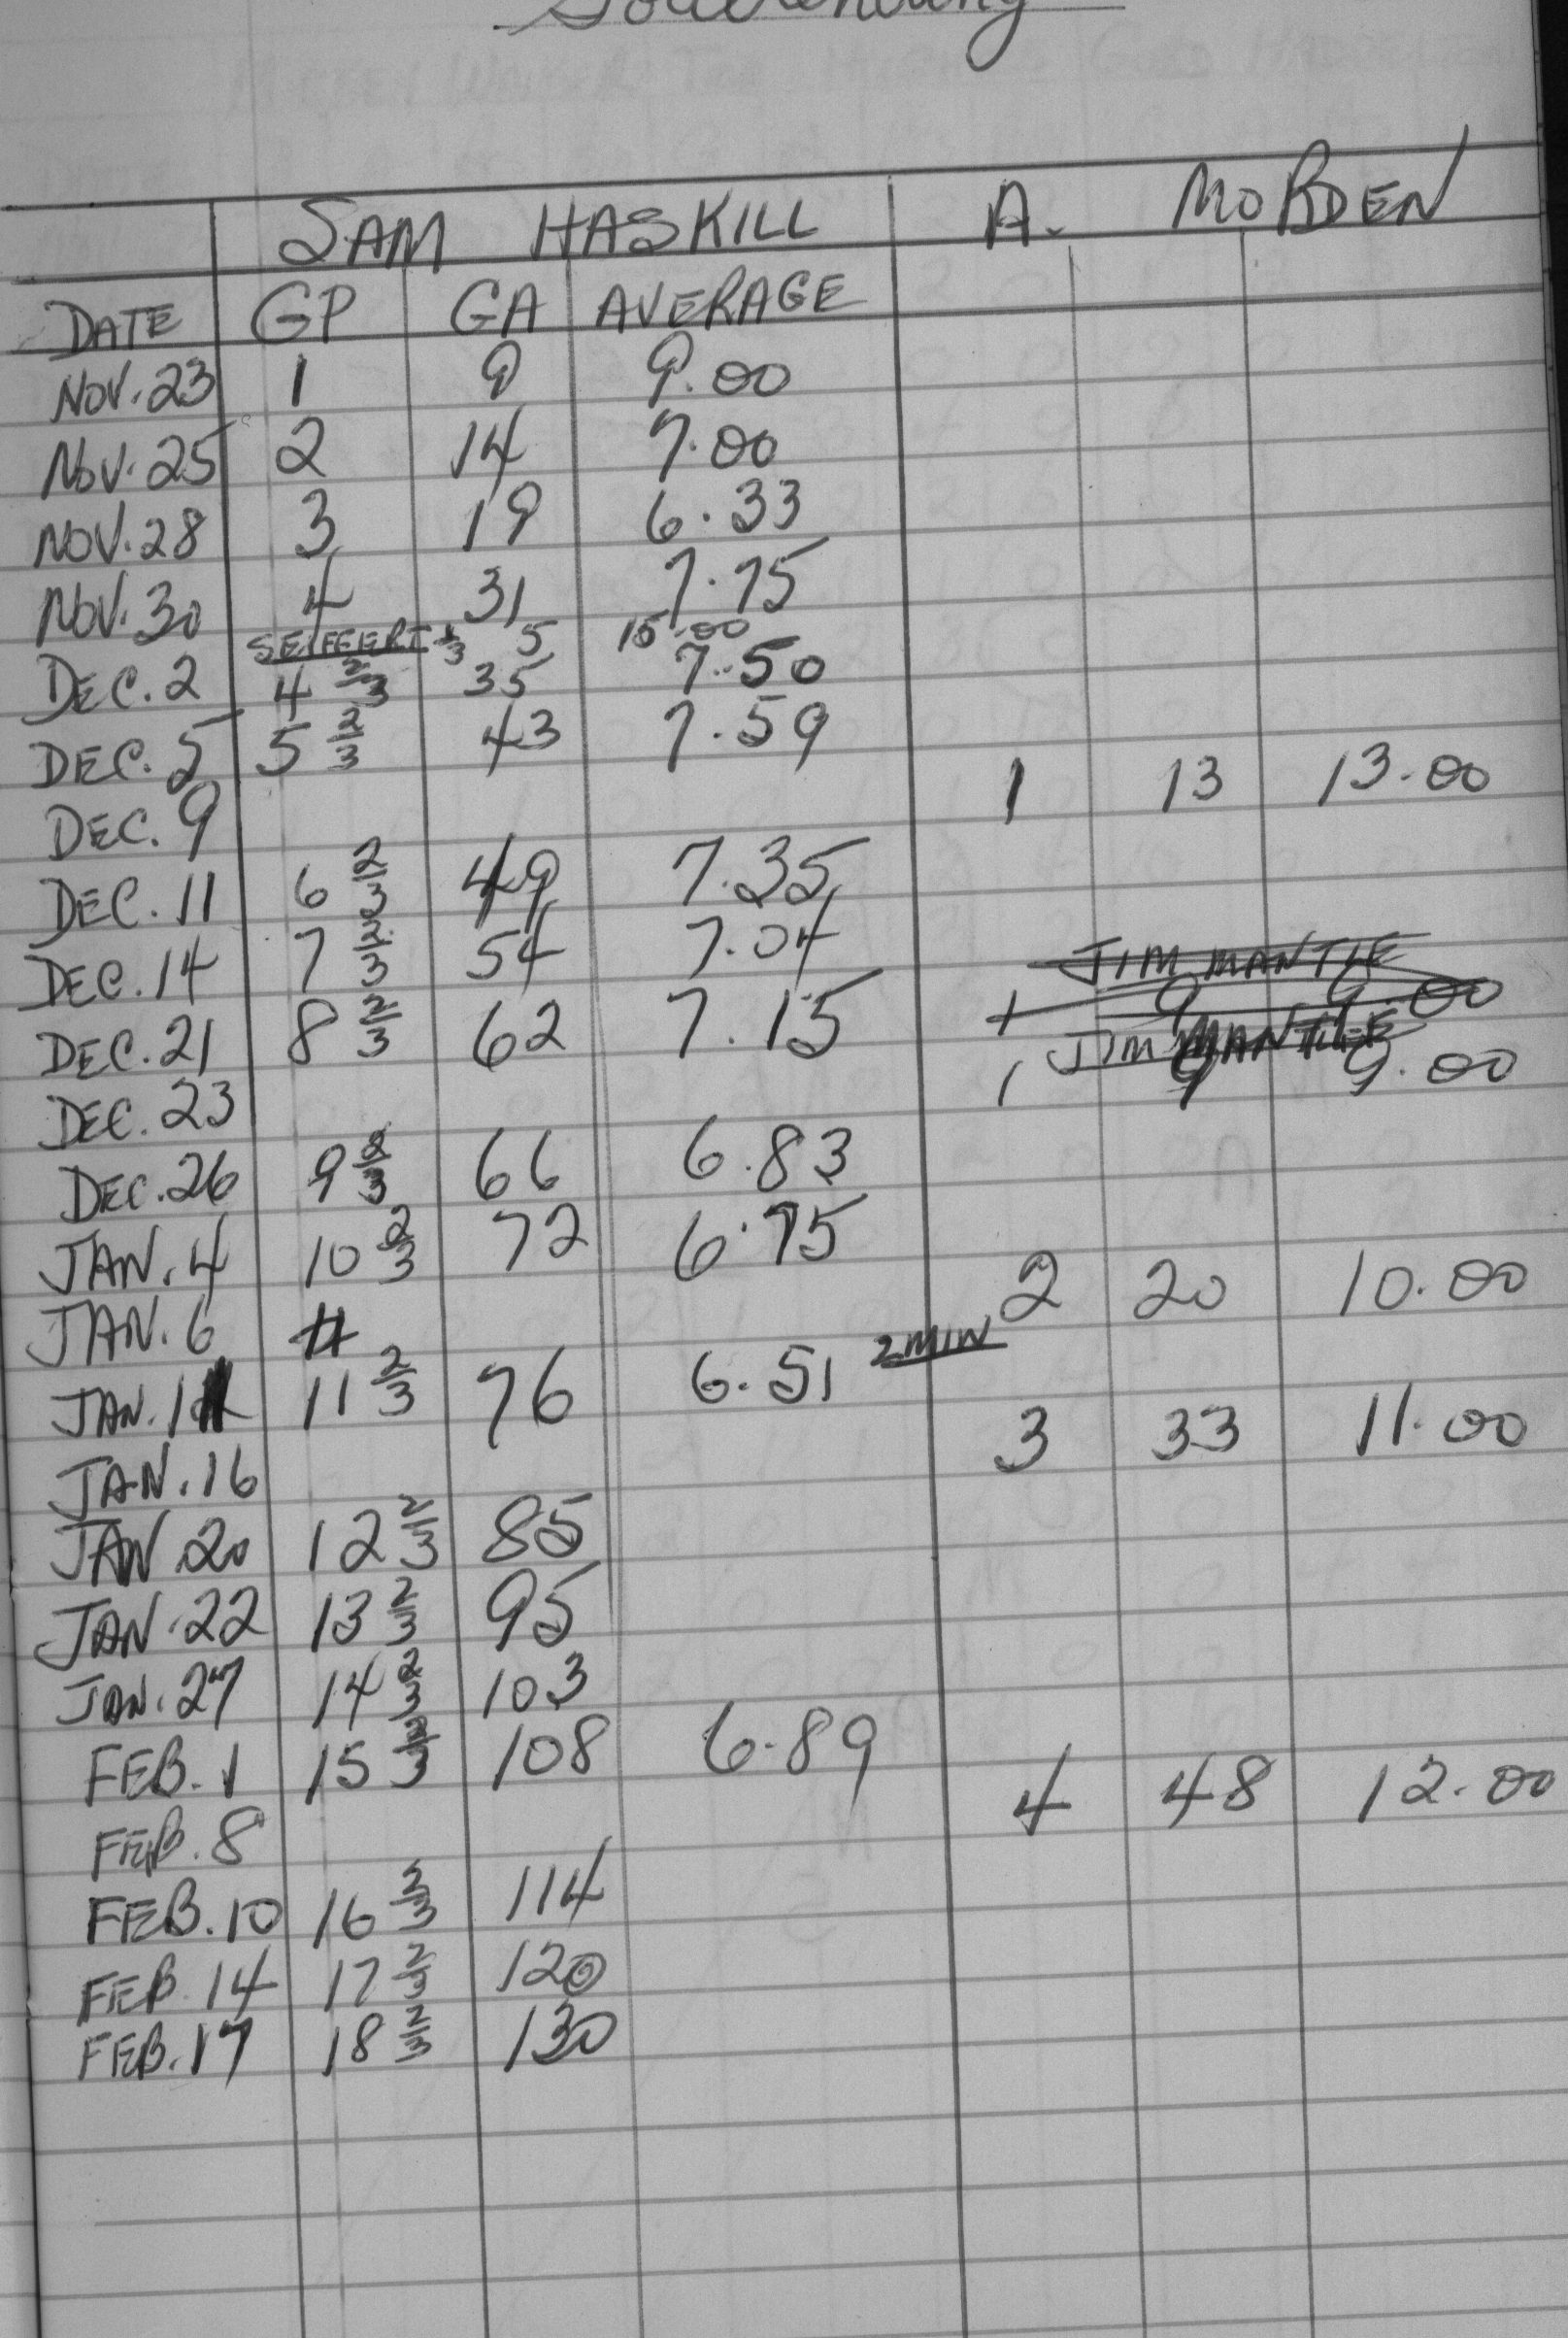 Goaltending
SAM HASKILL A. MORDEN
DATE GP GA AVERAGE
NOV. 23 1 9 9.00
NOV. 25 2 14 7.00
NOV. 28 3 19 6.33
NOV. 30 4 31 7.75
SEIFFERT 1/3 5 15.00
DEC. 2 4 2/3 35 7.50
DEC. 5 5 2/3 43 7.59
DEC. 9 1 13 13.00
DEC. 11 6 2/3 49 7.35
DEC. 14 7 2/3 54 7.04
JIM MANTLE
DEC. 21 8 2/3 62 7.15 1 9 9.00
JIM MANTLE
DEC. 23 1 9 9.00
DEC. 26 9 2/3 66 6.83
JAN. 4 10 2/3 72 6.75
JAN. 6 11 2 20 10.00
JAN. 11 11 2/3 76 6.51 2 MIN
JAN. 16 3 33 11.00
JAN 20 12 2/3 85
JAN. 22 13 2/3 95
JAN. 27 14 2/3 103
FEB. 1 15 2/3 108 6.89
FEB. 8 4 48 12.00
FEB. 10 16 2/3 114
FEB. 14 17 2/3 120
FEB. 17 18 2/3 130